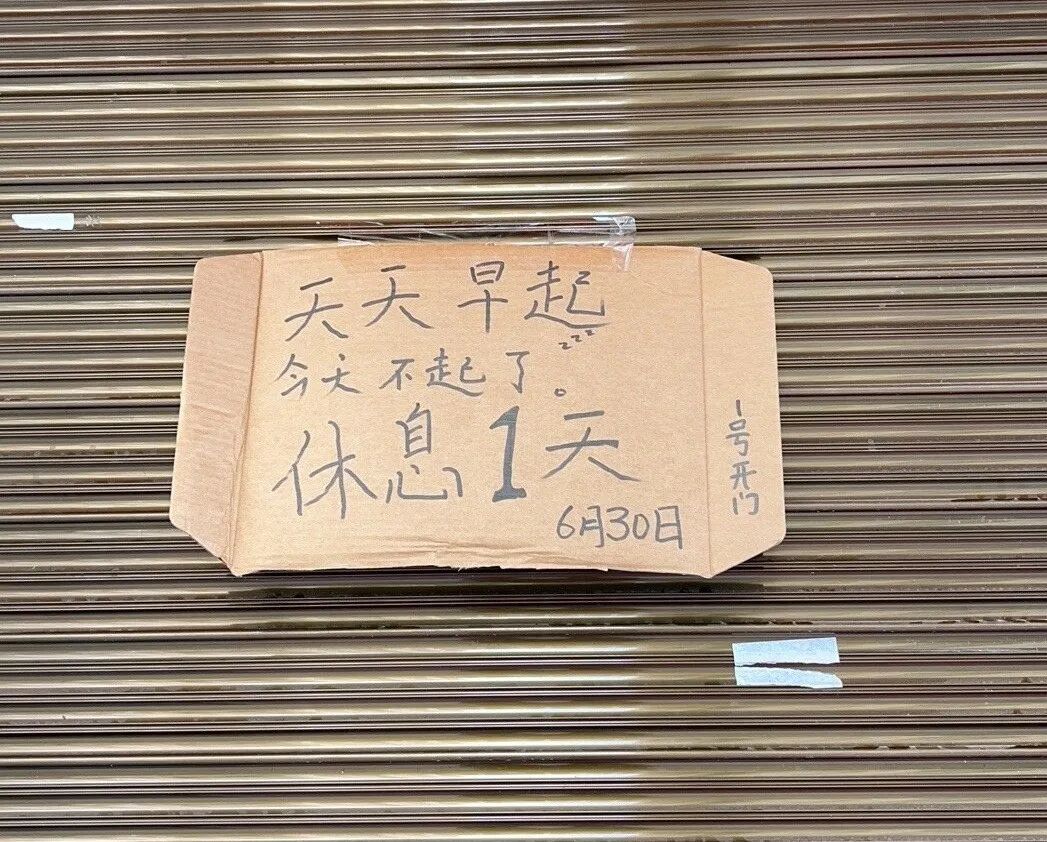 天天早起
zzz
今天不起了。
休息1天
6月30日
1号开门